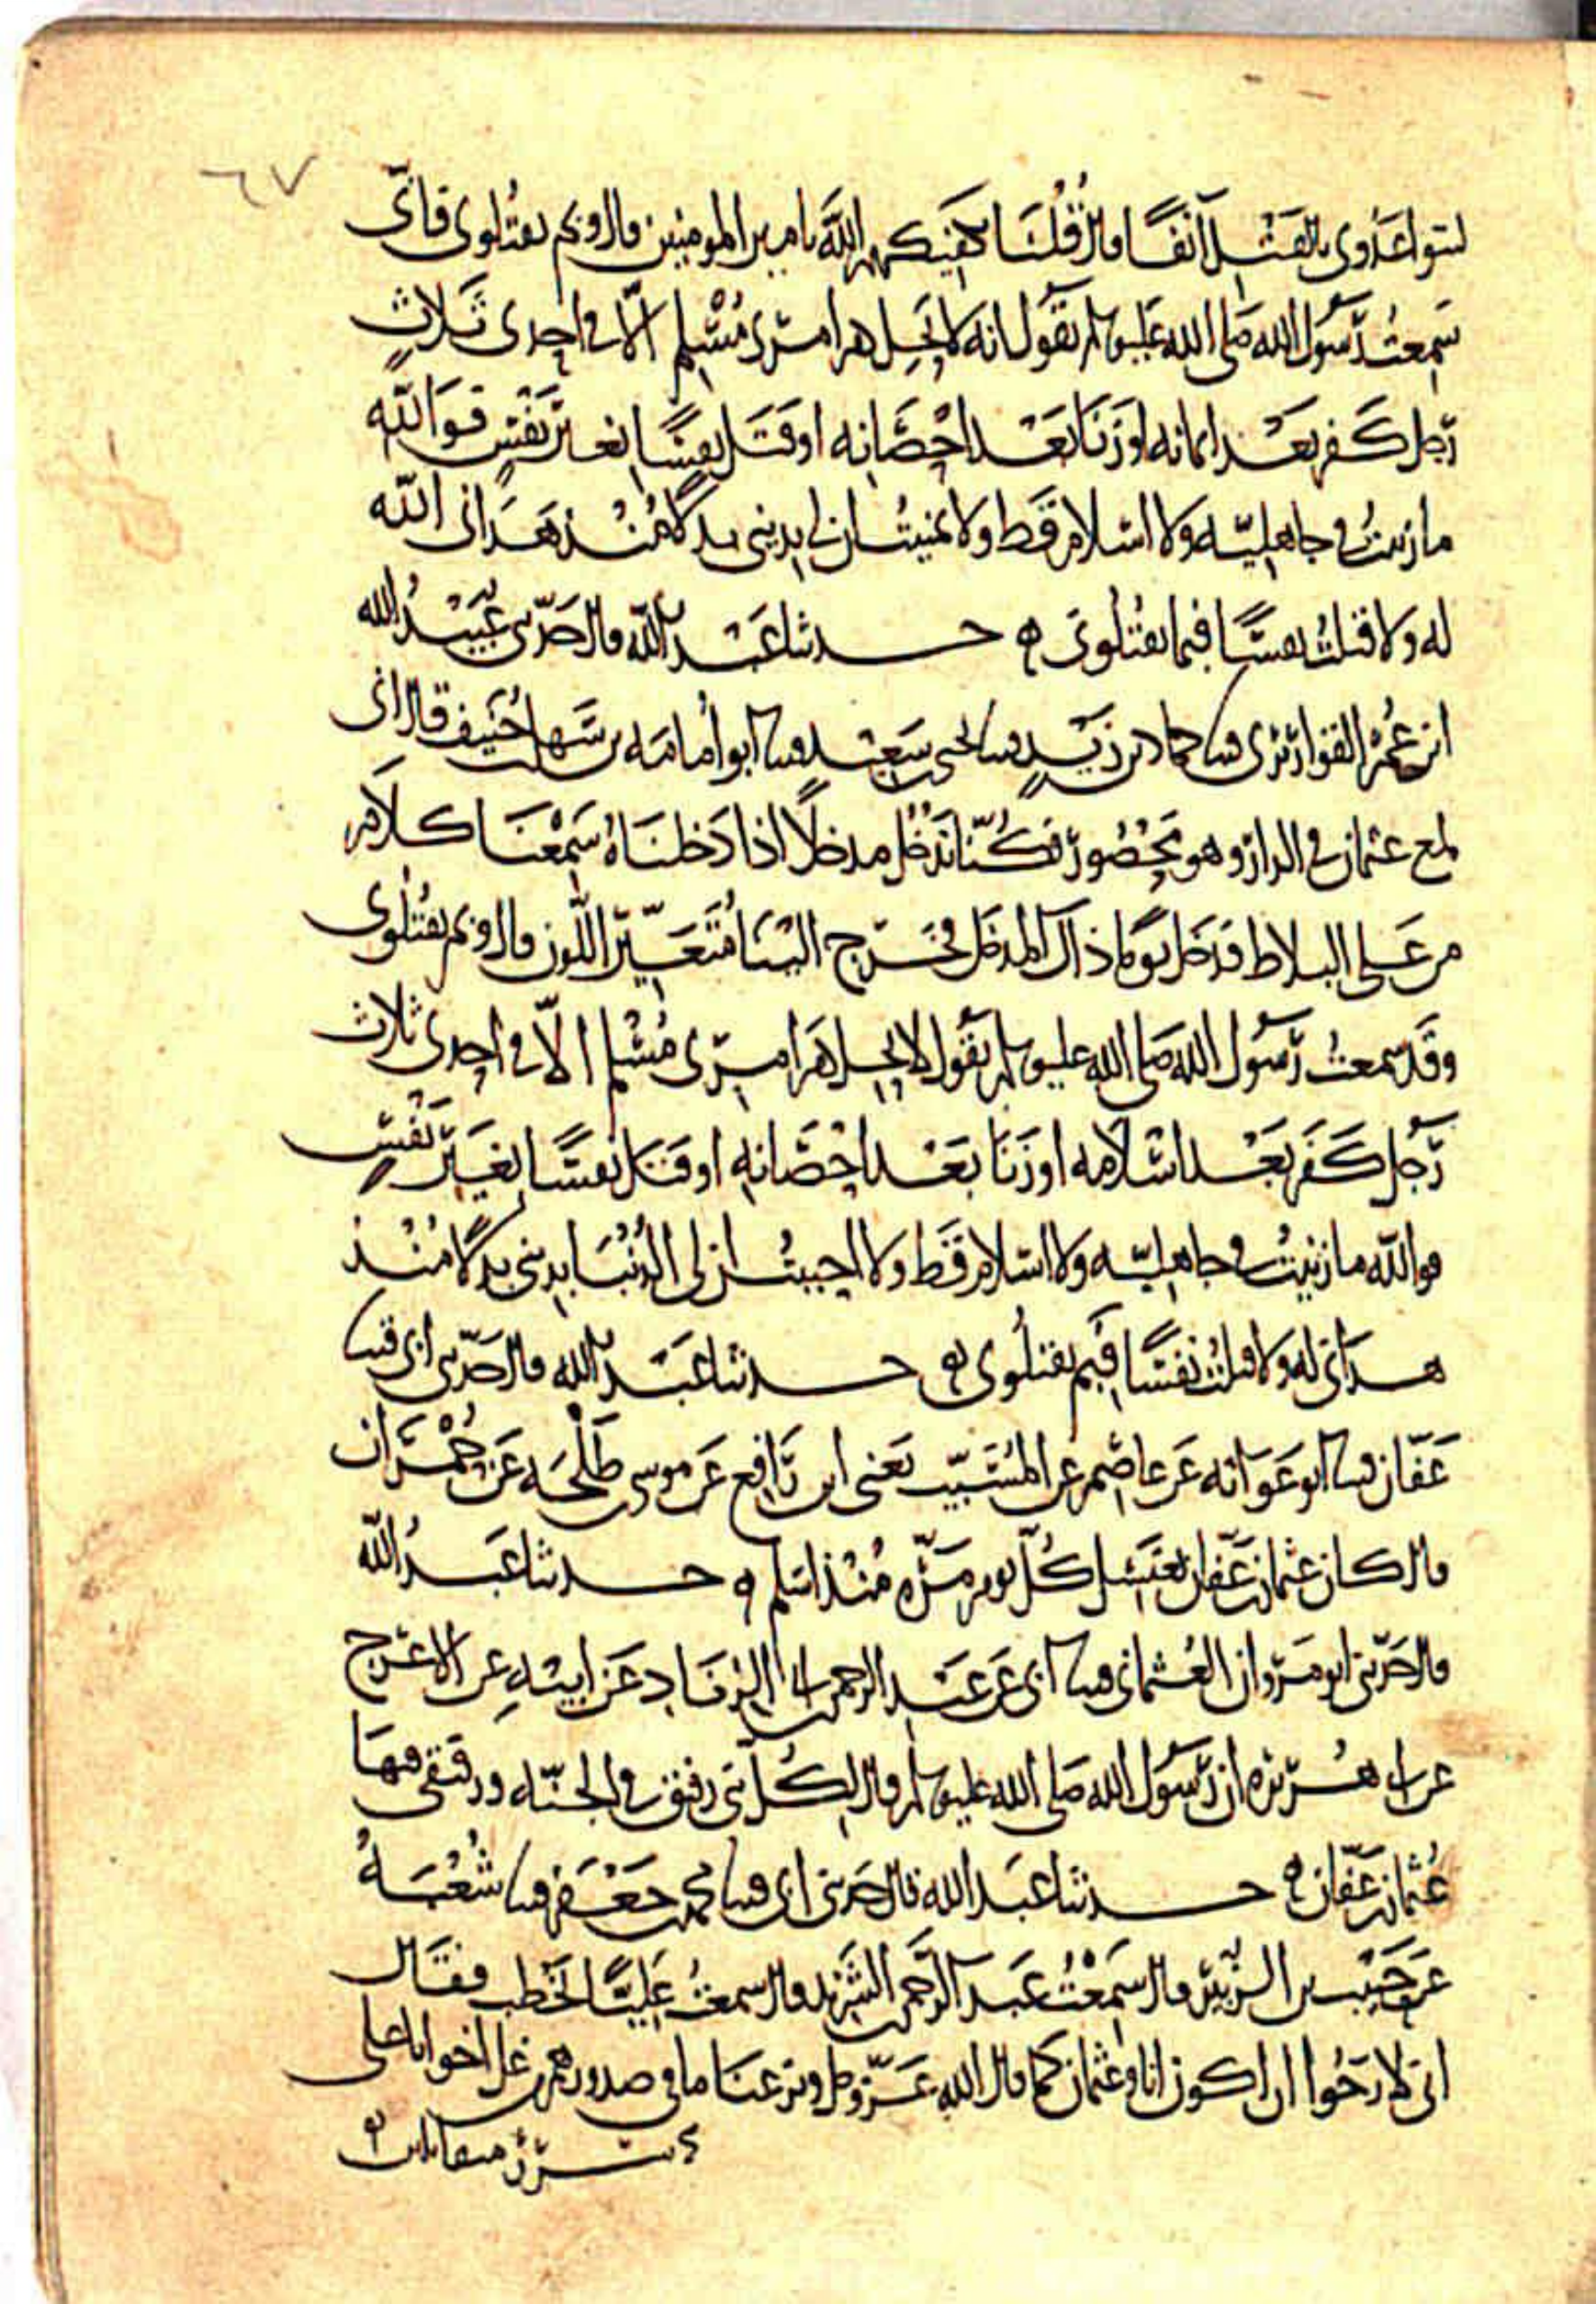 ٦٧
ليتواعدوني بالقتل آنفًا قال قُلنا يكفيكهم الله يا أمير المؤمنين قال وبم يقتلوني فاني
سمعتُ رسول الله صلى الله عليه وسلم يقول انه لا يحل دم امرئ مُسلم الّا في احدى ثلاث
رجل كفر بعد ايمانه او زنا بعد احصانه او قتل نفسًا بغير نفسٍ فوالله
ما زنيتُ في جاهليّه ولا اسلام قط ولا تمنيتُ ان لي بديني بدلا مُنذ هداني الله
له ولا قتلتُ نفسًا فبما يقتلوني ه حدثنا عبد الله قال حدّثني عُبيدُ الله
ابن عُمر القواريري قثنا حماد بن زيدٍ قثنا يحيى بن سعيد قثنا ابو أمامه بن سهل بن حُنيف قال اني
لمع عثمان في الدار وهو محصُور فكُنّا ندخُل مدخلًا اذا دخلناهُ سمعنا كلام
من على البلاط فدخل يومًا ذاك المدخل فخرج الينا مُتغيّر اللون قال وبم يقتُلوني
وقد سمعتُ رسول الله صلى الله عليه وسلم يقول لا يحل دم امرئ مُسلم الّا في احدى ثلاث
رجُل كفر بعد اسلامه او زنا بعد احصانه او قتل نفسًا بغير نفس
فوالله ما زنيتُ في جاهليّه ولا اسلام قط ولا احببتُ ان لي الدُنيا بديني بدلًا مُنذ
هداني له ولا قتلتُ نفسًا فبم يقتلوني ه حدثنا عبد الله قال حدّثني ابي قثنا
عفّان قثنا ابو عوانه عن عاصم عن المُسيّب يعني ابن رافع عن موسى بن طلحه عن حُمران
قال كان عثمان بن عفّان يغتسل كُلّ يوم مرّه مُنذ اسلم ه حدثنا عبدُ الله
قال حدّثني ابو مروان العُثماني قثنا ابي عن عبد الرحمن بن ابي الزناد عن ابيه عن الاعرج
عن ابي هُريره ان رسول الله صلى الله عليه وسلم قال لكُل نبي رفيق في الجنّه ورفيقي فيها
عُثمان بن عفّان ه حدثنا عبد الله قال حدثني ابي قثنا محمد بن جعفر قثنا شُعبهُ
عن حبيب بن الزُبير قال سمعتُ عبد الرحمن بن الشرّيد قال سمعتُ عليًا يخطب فقال
اني لارجُوا ان اكون انا وعثمان كما قال الله عزّ وجل ونزعنا ما في صدورهم من غل اخوانا على
سُرُرٍ متقابلين ه